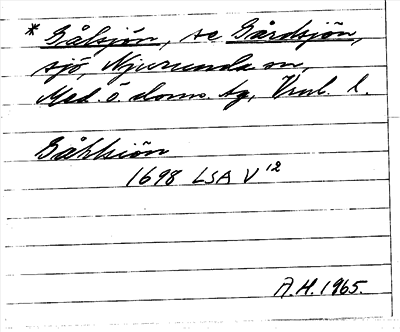 * Gålsjön, se Gårdsjön,
sjö, Njurunda sn,
Med. ö. doms. tg, Vnl. l.
Gåhlsiön
1698 LSA V 12
A.H. 1965.